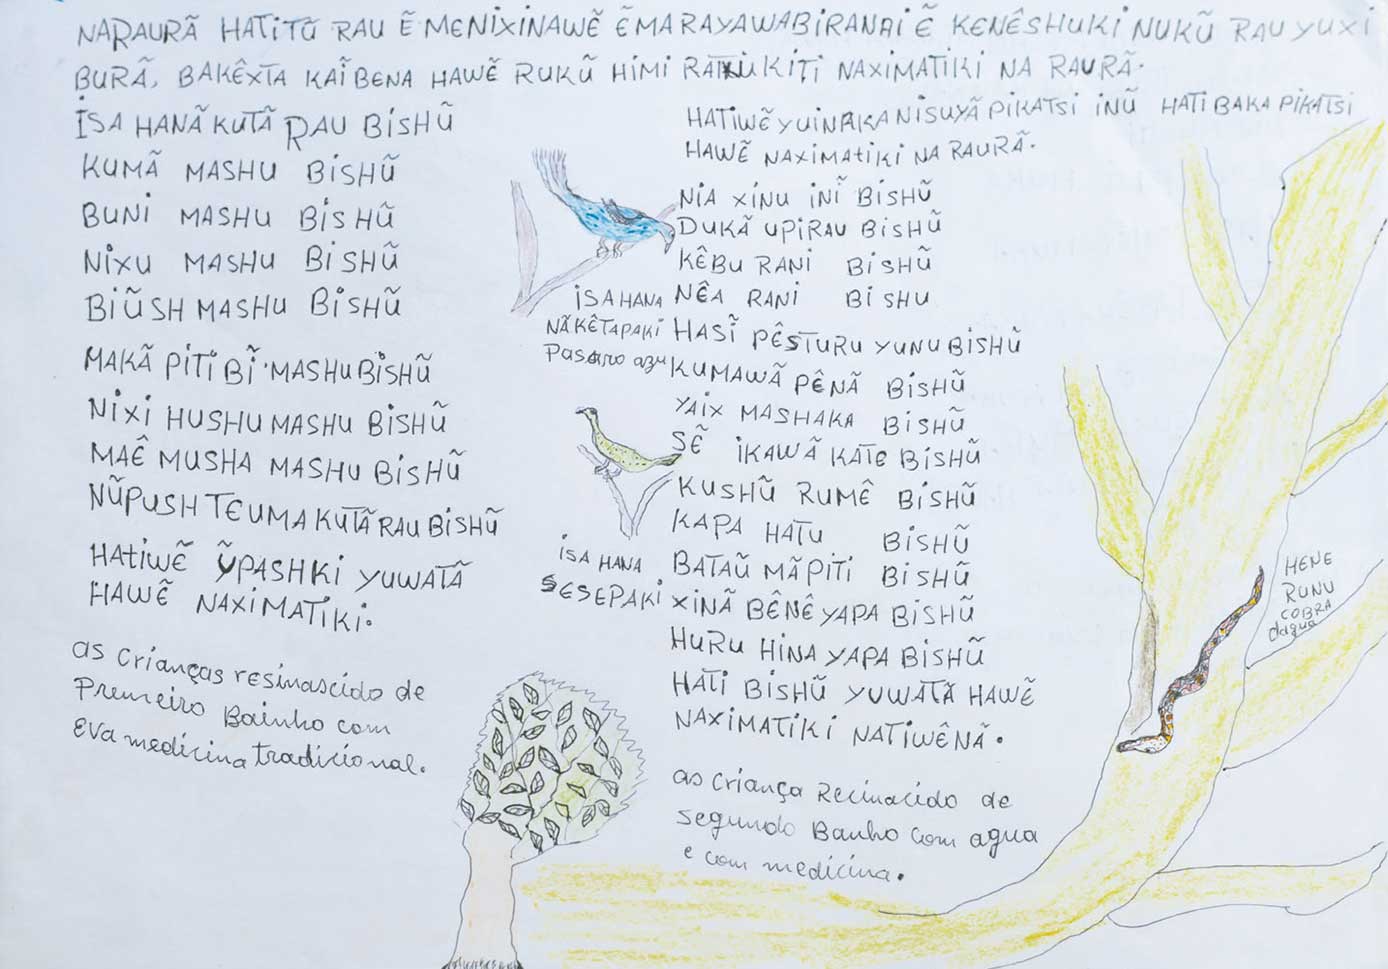 NARAURÃ HATITŨ RAU Ẽ MENIXINAWẼ ẼMARAYAWABIRANAI Ẽ KENÊSHUKI NUKŨ RAU YUXI
BURÃ, BAKÊXTA KAĨ BENA HAWẼ RUKŨ HIMI RATXUKITI NAXIMATIKI NA RAURÃ.
ISA HANÃ KUTÃ RAU BISHŨ
KUMÃ MASHU BISHŨ
BUNI MASHU BISHŨ
NIXU MASHU BISHŨ
BIŨSH MASHU BISHŨ
MAKÃ PITI BĨ MASHU BISHŨ
NIXI HUSHU MASHU BISHŨ
MAÊ MUSHA MASHU BISHŨ
NŨPUSH TEUMA KUTÃ RAU BISHŨ
HATIWẼ ŨPASHKI YUWATÃ
HAWẼ NAXIMATIKI.
as Crianças resinascido de
Premeiro Bainho com
Eva medicina tradicional.
HATIWẼ YUINAKA NISUYÃ PIKATSI INŨ HATI BAKA PIKATSI
HAWẼ NAXIMATIKI NA RAURÃ.
NIA XINU INĨ BISHŨ
DUKÃ UPIRAU BISHŨ
KÊBU RANI BISHŨ
NÊA RANI BISHU
HASĨ PÊSTURU YUNU BISHŨ
KUMAWÃ PÊNÃ BISHŨ
YAIX MASHAKA BISHŨ
SẼ IKAWÃ KATE BISHŨ
KUSHŨ RUMÊ BISHŨ
KAPA HATU BISHŨ
BATAŨ MÃPITI BISHŨ
XINÃ BÊNÊ YAPA BISHŨ
HURU HINA YAPA BISHŨ
HATI BISHŨ YUWATÃ HAWẼ
NAXIMATIKI NATIWÊNÃ.
as Criança Recinacido de
segundo Banho com agua
e com medicina.
ISA HANA
NÃKÊTAPAKI
Pasaro azu
ISA HANA
SESEPAKI
HENE
RUNU
COBRA
dagua